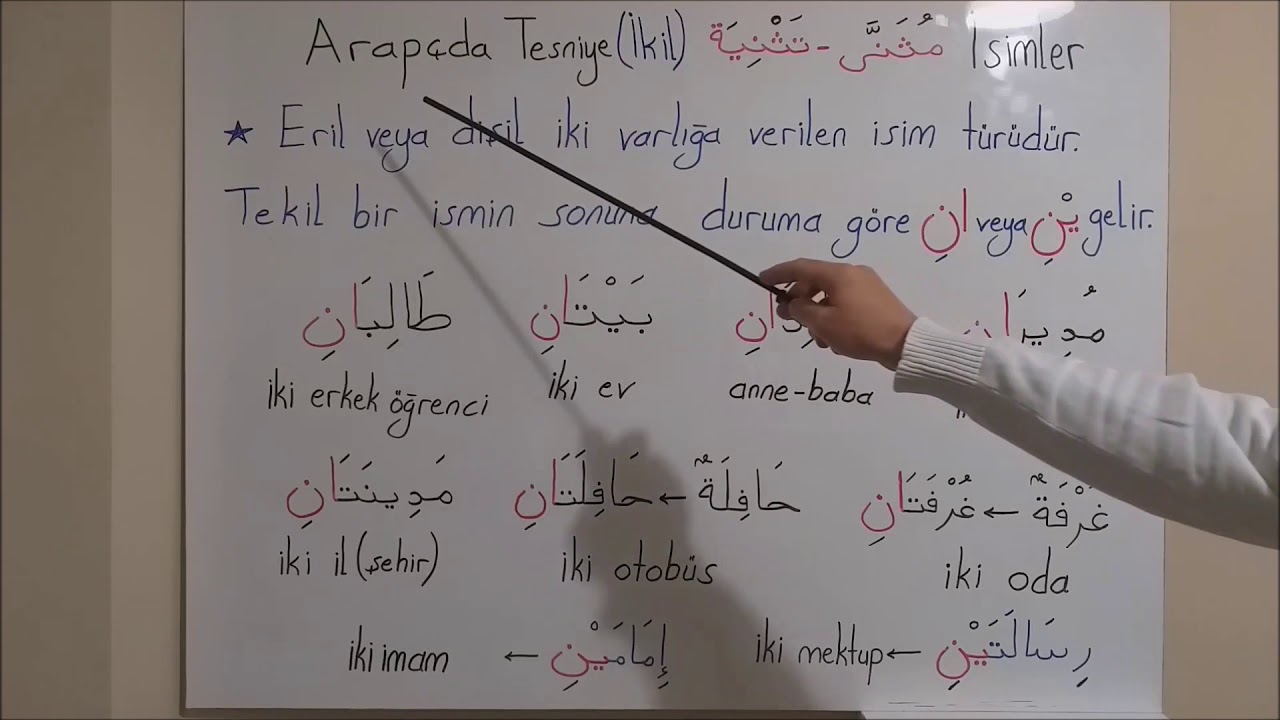 Arapçda Tesniye (İkil) مُثَنَّى - تَثْنِيَة İsimler
★ Eril veya dişil iki varlığa verilen isim türüdür.
Tekil bir ismin sonuna duruma göre انِ veya يْنِ gelir.
مُدِيرَانِ بَيْتَانِ طَالِبَانِ
iki erkek öğrenci iki ev anne-baba
غُرْفَةٌ ← غُرْفَتَانِ حَافِلَةٌ ← حَافِلَتَانِ مَدِينَتَانِ
iki il (şehir) iki otobüs iki oda
رِسَالَتَيْنِ ← iki mektup إِمَامَيْنِ ← iki imam